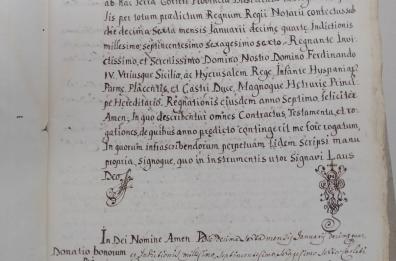 lis per totum prædictum Regnum Regij Notarij contectus sub
die decima sexta mensis Januarij decime quarte Indictionis
millesimo, septincentesimo sexagesimo sexto. Regnante Invic-
tissimo, et Serenissimo Domino Nostro Domino Ferdinando
IV. Vtriusque Siciliæ, ac Hyerusalem Rege, Infante Hyspaniar
Parmæ, Placentiæ, et Castri Duce, Magnoque Hetruriæ Princi-
pe Hereditario. Regnationis ejusdem anno Septimo feliciter
Amen. In quo describentur omnes Contractus, Testamenta, et ro-
gationes, de quibus anno predicto contingerit me fore rogatum,
In quorum infrascribendorum perpetuam fidem scripsi manu
propria, signoque, quo in instrumentis utor Signavi Laus
Deo
In Dei Nomine Amen. Die Decima Sexta mensis Januarij decimequar
Donatio bonorum Indictionis millesimo septincentesimo sexagesimo sexto